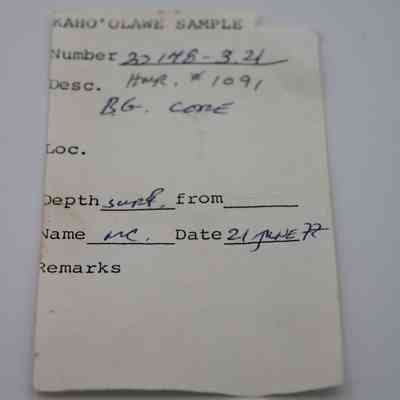 KAHO'OLAWE SAMPLE
Number 22148-3.21
Desc. HWR. #1091
BG. CORE
Loc.
Depth surf. from
Name MC. Date 21 JUNE 77
Remarks